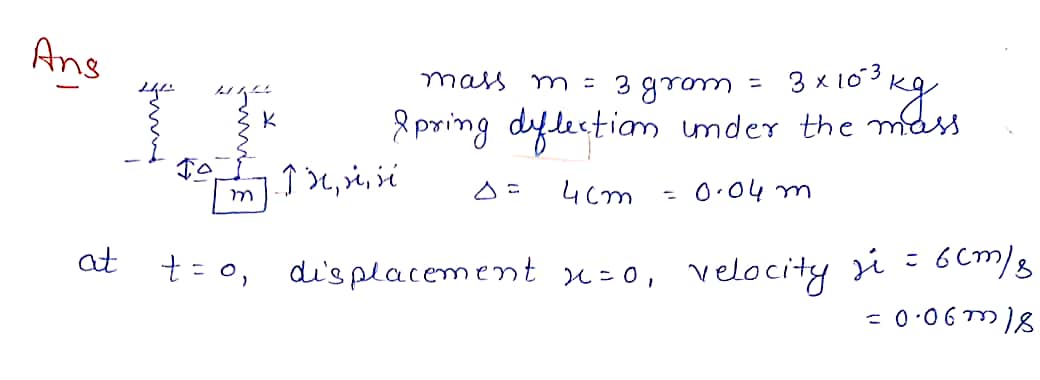 Ans
mass m = 3 gram = 3 × 10⁻³ kg
K
Spring deflection under the mass
Δ
m ↑ x, ẋ, ẍ
Δ = 4cm = 0.04 m
at t = 0, displacement x = 0, velocity ẋ = 6cm/s
= 0.06 m/s